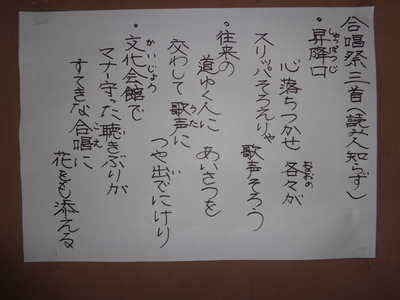 合唱祭三首(読み人知らず)
・昇降口
しゅっぱつじ
心落ちつかせ 各々が
おのおの
スリッパそろえりゃ 歌声そろう
・往来の
道ゆく人に あいさつを
交わして歌声に
うた
つや出でにけり
・文化会館で
かいじょう
マナー守った聴きぶりが
すてきな合唱に
花をも添える